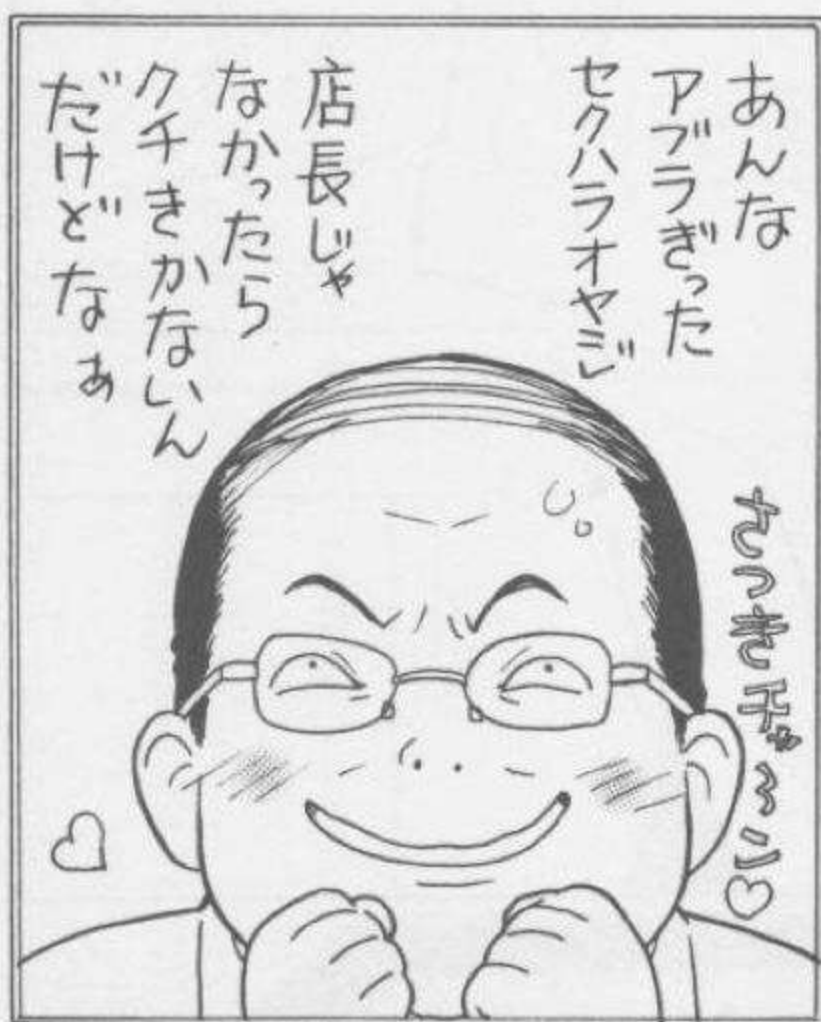 あんな
アブラぎった
セクハラオヤジ
店長じゃ
なかったら
クチきかないん
だけどなぁ
さつきチャ〜ン♡